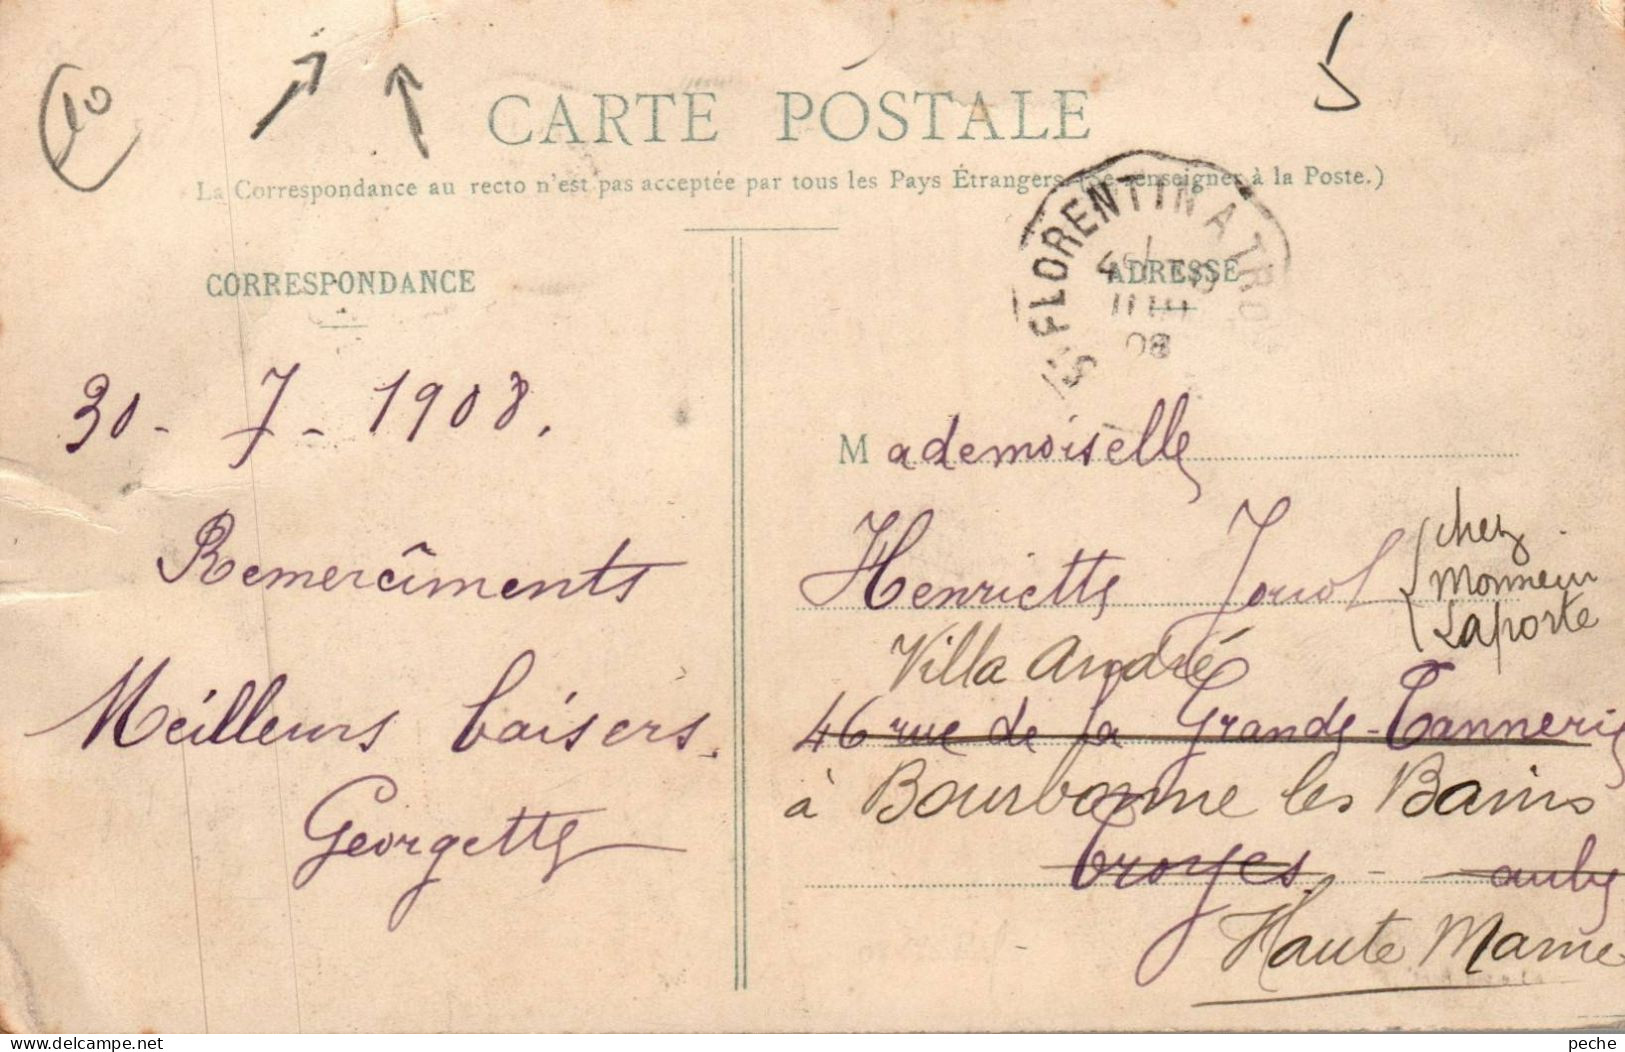 10
5
CARTE POSTALE
La Correspondance au recto n'est pas acceptée par tous les Pays Étrangers. (Se renseigner à la Poste.)
ST FLORENTIN A TRO
08
CORRESPONDANCE
ADRESSE
30-7-1908.
Remercîments
Meilleurs baisers.
Georgette
Mademoiselle
Henriette
chez
Monsieur
Laporte
Villa André
46 rue de la Grande-Tannerie
à Bourbonne les Bains
Troyes. - aube
Haute Marne
peche